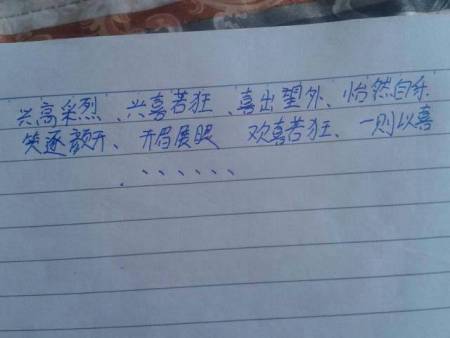 兴高采烈、兴喜若狂、喜出望外、怡然自乐
笑逐颜开、开眉展眼 欢喜若狂、一则以喜
、、、、、、、